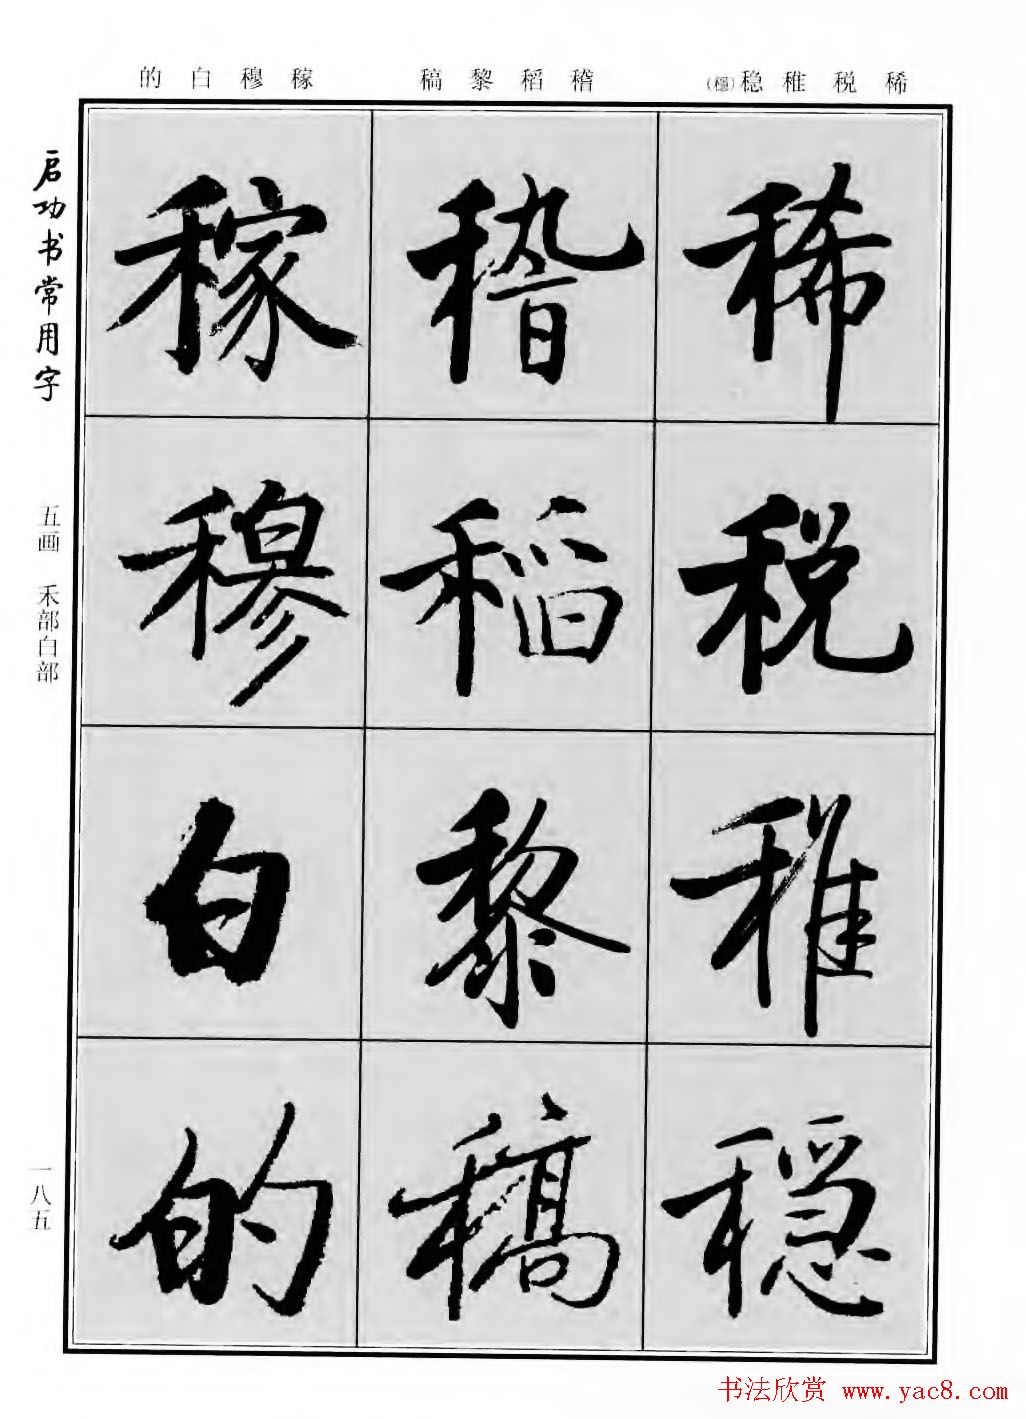 的白穆稼 稿黎稻稽 (穩)稳稚税稀
启功书常用字
五画 禾部白部
一八五
稀
税
稚
稳
稽
稻
黎
稿
稼
穆
白
的
书法欣赏 www.yac8.com